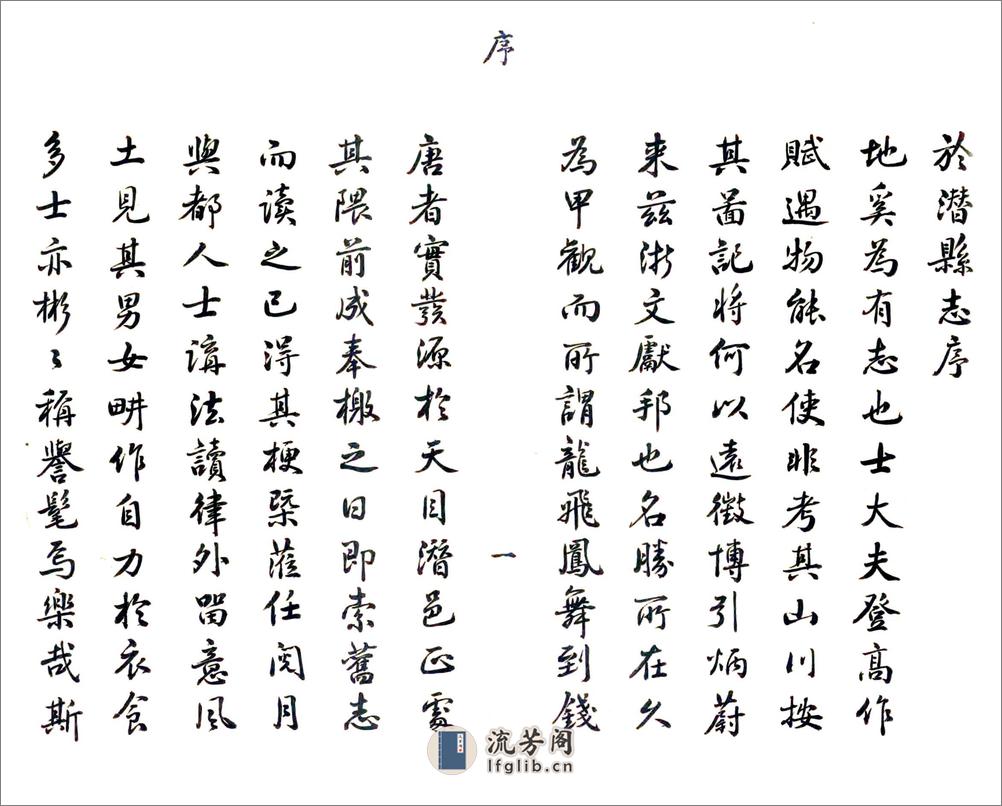 序
於潛縣志序
地奚為有志也士大夫登高作
賦遇物能名使非考其山川按
其啚記將何以遠徵博引炳蔚
来兹淅文獻邦也名勝所在久
為甲觀而所謂龍飛鳳舞到錢
一
唐者實發源於天目潛邑正處
其隈前成奉檄之日即索舊志
而读之已淂其梗槩蒞任閱月
與都人士講法讀律外留意風
土見其男女畊作自力於衣食
多士亦彬〻稱譽髦焉樂哉斯
流芳阁
lfglib.cn